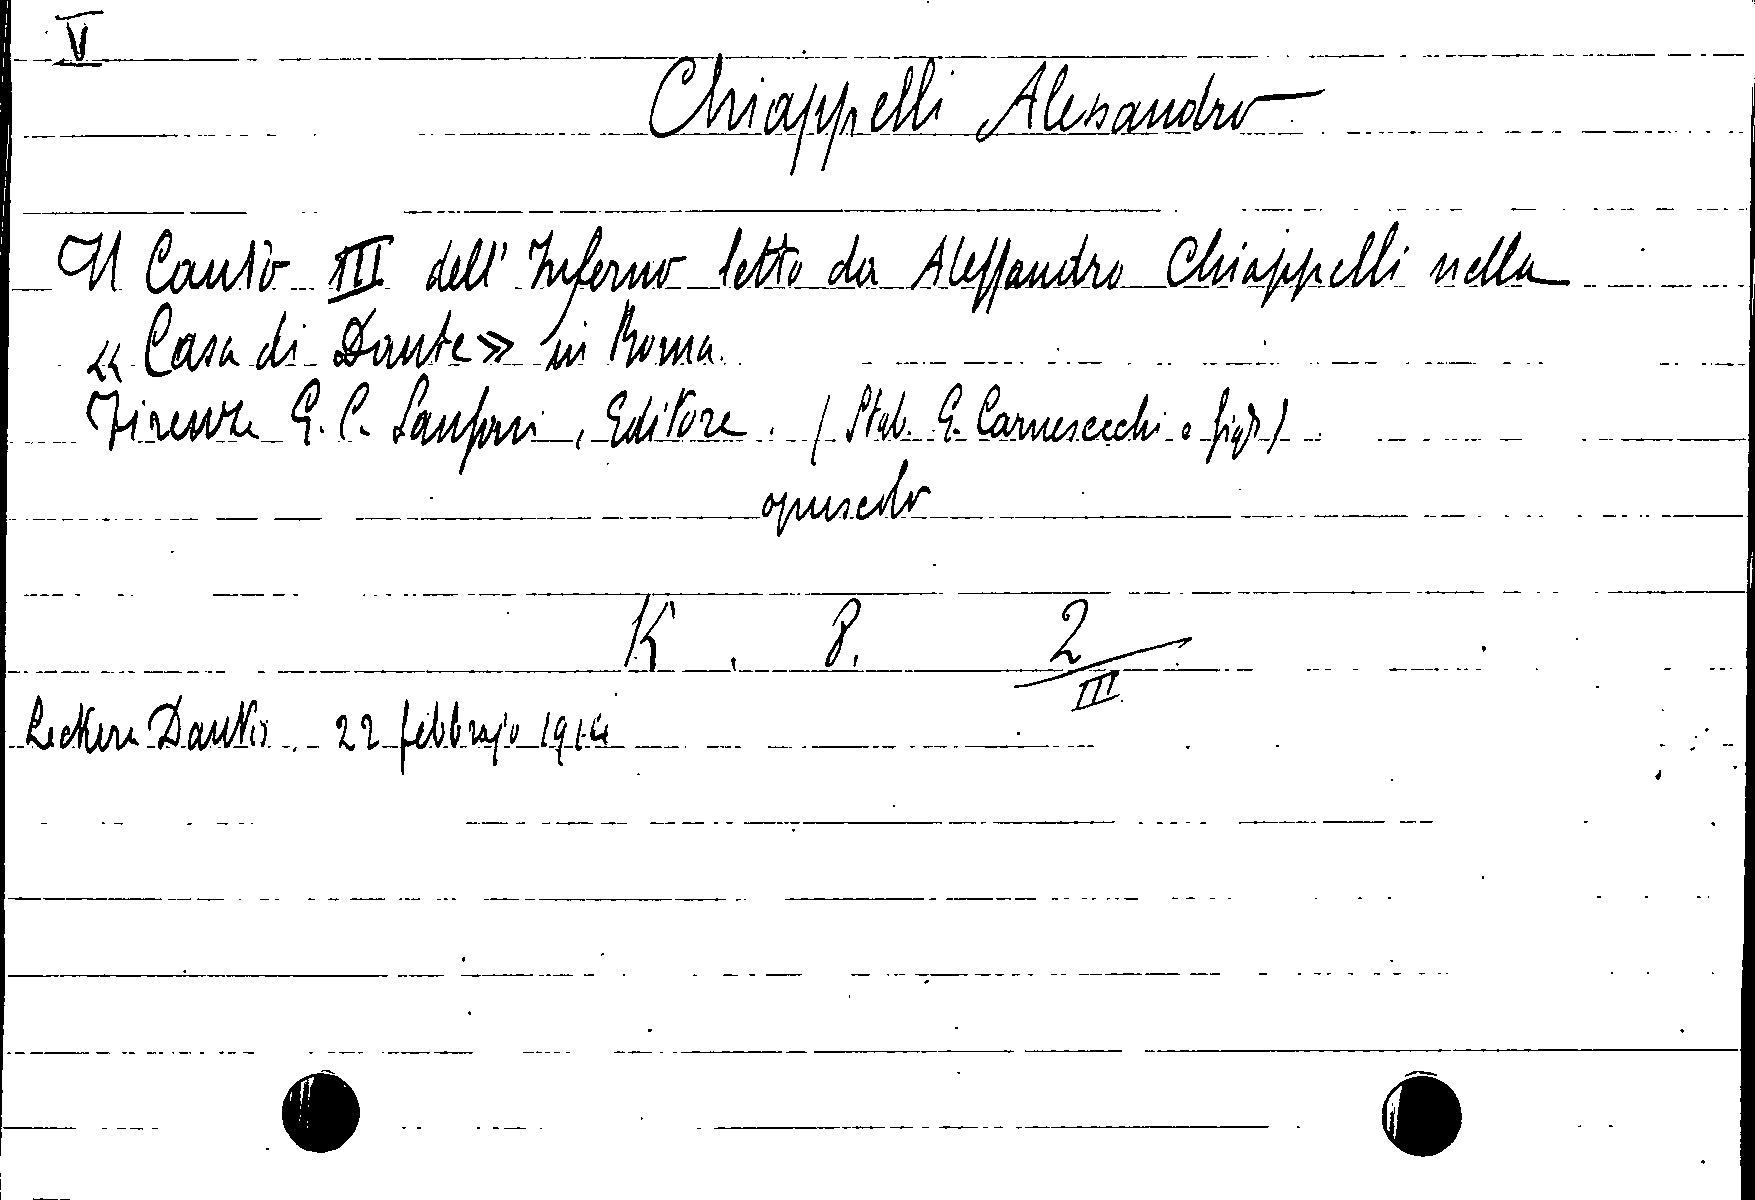 V
Chiappelli Alessandro
Il Canto III dell' Inferno letto da Alessandro Chiappelli nella
« Casa di Dante » in Roma.
Firenze G. C. Sansoni, Editore. (Stab. G. Carnesecchi e figli)
opuscolo
K . 8. 2
III
Lectura Dantis. 22 febbrajo 1914